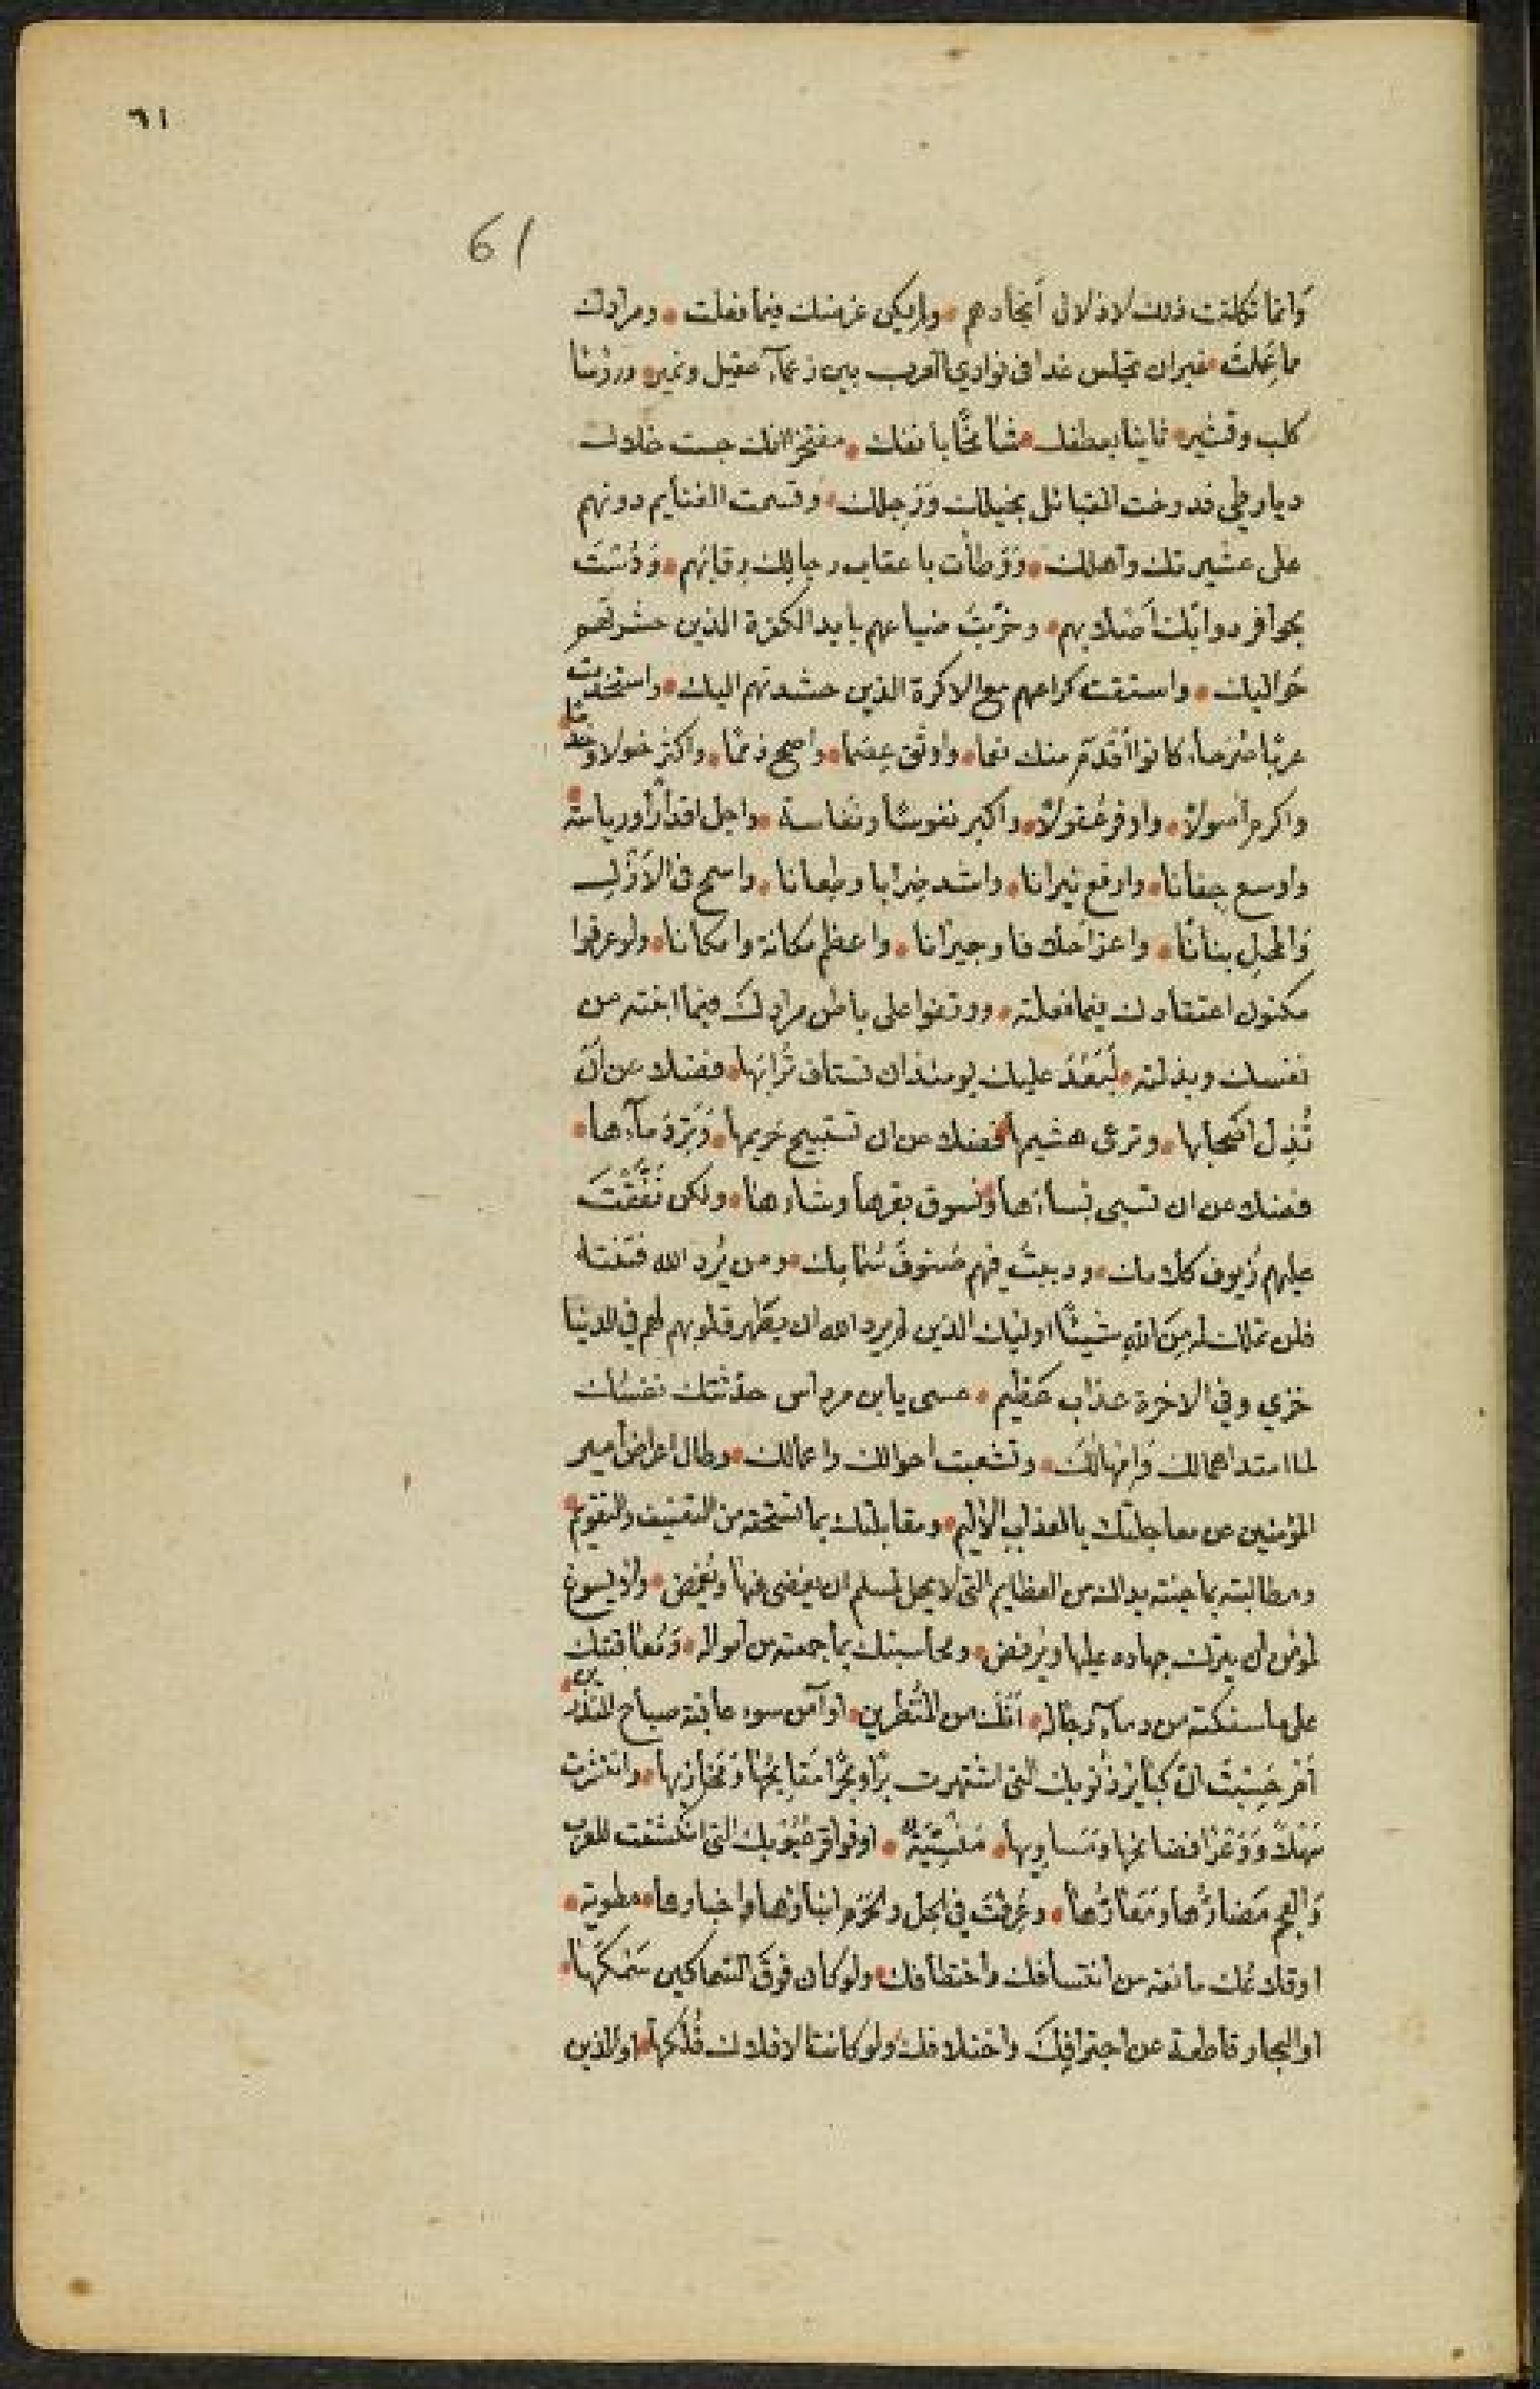 ٦١
61
وَانما تكلفت ذلك لاذلال أنجادهم • ولم يكن غرضك فيما فعلت • ومرادك
ما عَمِلتَ • غير ان تجلس غدا فى نوادي العرب بين زعمآء عقيل ونمير • ورؤسَا
كلب وقشير • ثانيا بعطفك • شامخًا بانفك • مفتخرا انك جست خلال
ديار طي فدوخت القبائل بخيلك وَرَجِلك • وقسمت الغنايم دونهم
على عشيرتك وآهلك • وَوَطأت باعقاب رجالك رقابَهم • وَدُسْتَ
بحوافر دوابّك أصْلابهم • وخرّبتَ ضياعهم بايد الكفرة الذين حشرتهم
حَواليك • واستقت كراعهم مع الاكرة الذين حشدتهم اليك • واستخدمت
عربًا صُرَحاء كانوا أقدَم منك نعما • واوثق عِصَما • واصح ذممًا • واكثر خولا وخدما •
واكرم أصولاً • واوفر عُقولاً • واكبر نفوسًا ونفاسة • واجل اقدارًا ورياسة •
واوسع جفانا • وارفع نيرانا • واشد ضرابا وطعانا • واسمح فى الأزَل
وَالمَحل بنانًا • واعز احلافا وجيرانا • واعظم مكانة وامكانا • ولو عرفوا
مكنون اعتقادك فيما فعلته • ووقفوا على باطن مرادك فيما ابغته من
نفسك وبذلته • لبَعُدَ عليك يومئذ ان تستاف تُرابَها • فضلا عن انْ
تُذِل اصحابها • وترعى هشيمها • فضلا عن ان تستبيح حَريمها • وَتَرِدَ مآءها •
فضلا عن ان تسبى نِسآءها • وتسوق بقرها وشاءها • ولكن نَفَّقْتَ
عليهم زُيوف كلامك • وربعتْ فيهم • ومن يُرد الله فتنته
فلن تملك له مِنَ الله شيئًا اوليك الذين لم يرد الله ان يطهر قلوبهم لهم فى الدنيا
خزي وفي الاخرة عذاب عَظيم • عسى يا ابن مرداس حدّثتك نفسُك
لما امتد اهمالك وَامْهالك • وتشعبت احوالك واعمالك • وطال اعراض أمير
المؤمنين عن معاجلتك بالعذاب الاليم • ومقابلتك بما تستحقه من التعنيف والتقويم •
ومطالبته بما جنته يداك من العظايم التي لا يحل لمسلم ان يغضى عنها ويُغمض • ولا يسوغ
لمؤمن ان يترك جهاده عليها ويَرفض • ومحاسبتك بما جمعته من اموالهِ • وَمُعاقبتك
على ما سفكته من دمآء رجاله • أنّكَ من المُنْظَرين • او آمن سوء عاقبة صباح المنذرين •
أمْ حَسِبْتَ انّ كبائر ذنوبك التى اشتهرت برًّا وبحْرًا مَقابحُها وَمَخازيها • وانتشرت
سَهْلاً وَوَعْرًا فضائحها ومَساويها • مَنْسِيّة • او عُيُوبك التى انكشفت للعرب
وَالعجم مَضارّها وَمَعَارّها • وعُرِفت في الحل والحَرَم انباؤها واخبارها • مطوية •
او قلاعك مانعة من انتسافك واختطافك • ولو كان فوق السّماكين سَمْكُها •
او البحار قاطعة عن اجترافِكَ واختلافك ولو كانت الافلاك فُلْكها • او الذين